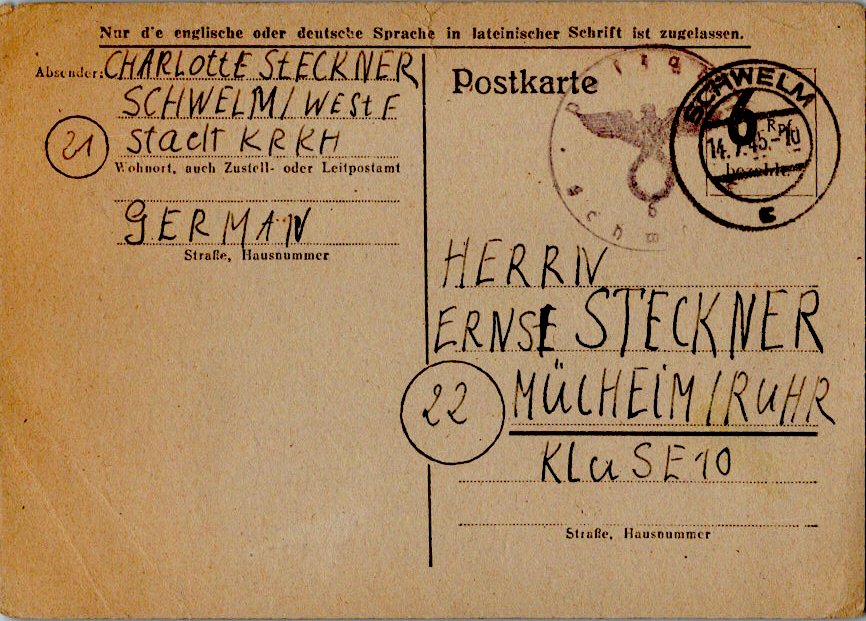 Nur d'e englische oder deutsche Sprache in lateinischer Schrift ist zugelassen.
Absender: CHARLOTTE STECKNER
SCHWELM/WESTF
21 Stadt KRKH
Wohnort, auch Zustell- oder Leitpostamt
GERMAN
Straße, Hausnummer
Postkarte
SCHWELM
6 RPf
14.7.45.-10
c
HERRN
ERNST STECKNER
22 MÜLHEIM/RUHR
KLUSE 10
Straße, Hausnummer